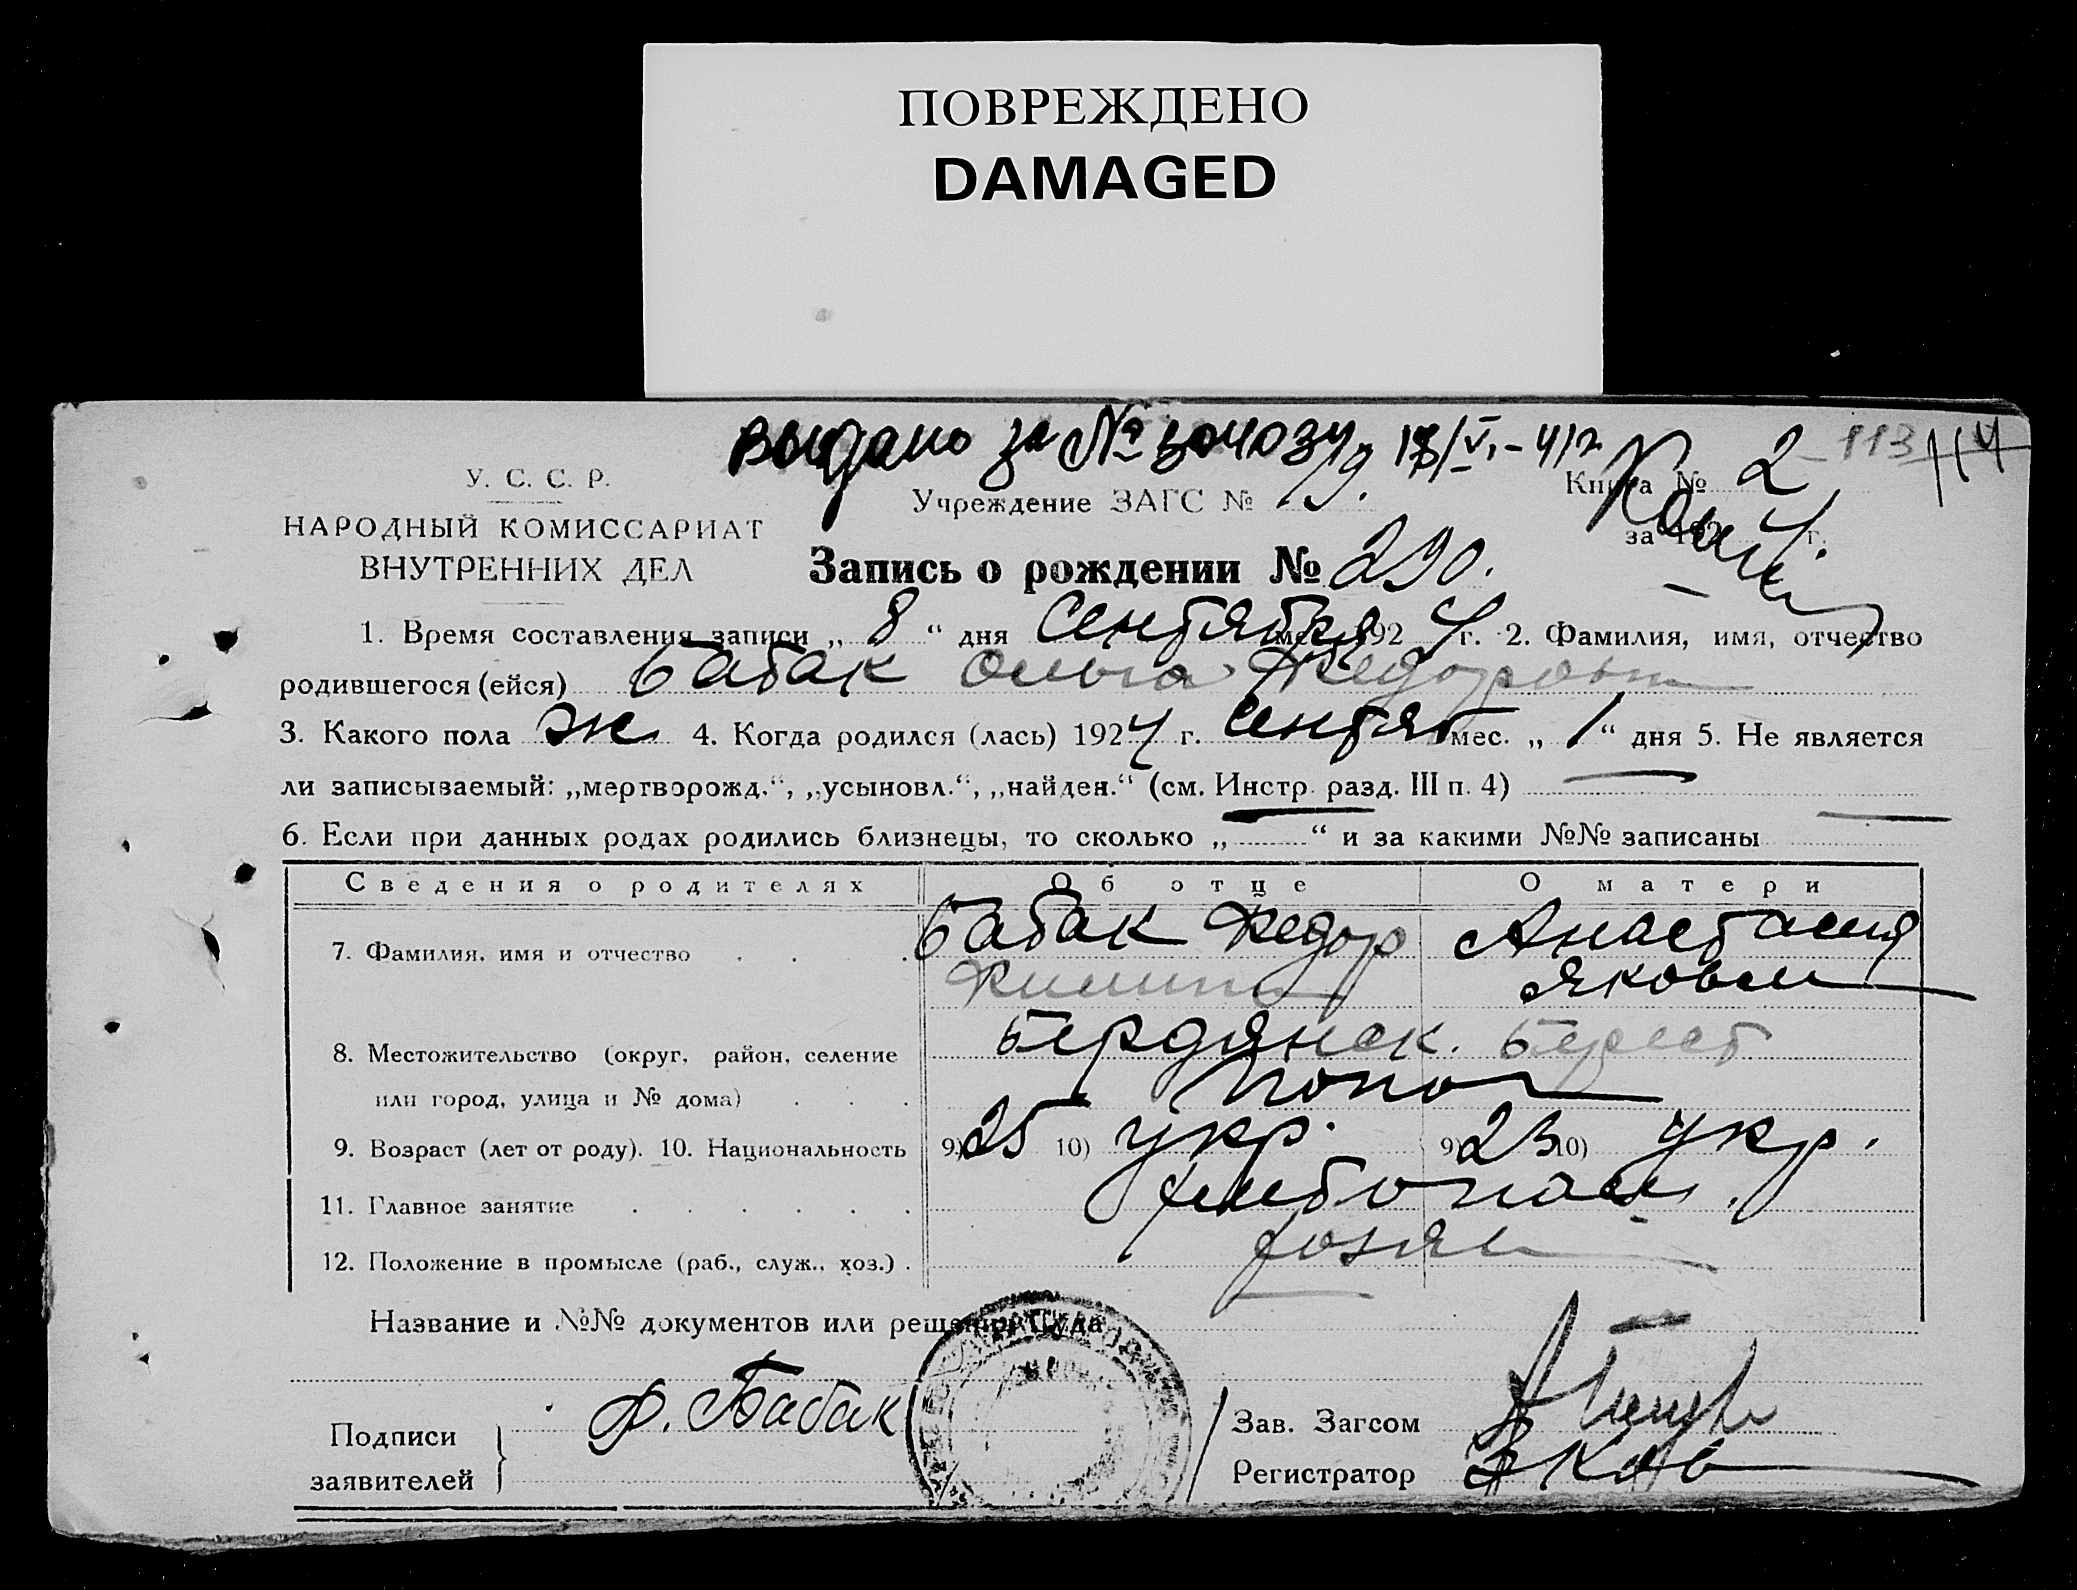 ПОВРЕЖДЕНО
DAMAGED
Выдано за №
113 114
У. С. С. Р.
НАРОДНЫЙ КОМИССАРИАТ
ВНУТРЕННИХ ДЕЛ
Учреждение ЗАГС № 19.
Книга № 2
за 1924 г.
Запись о рождении № 290.
1. Время составления записи „ 8 “ дня Сентября мес. 1924 г. 2. Фамилия, имя, отчество
родившегося (ейся) Бабак Ольга Федоровн
3. Какого пола ж 4. Когда родился (лась) 1924 г. Сентяб мес. „ 1 “ дня 5. Не является
ли записываемый: „мертворожд.“, „усыновл.“, „найден.“ (см. Инстр. разд. III п. 4)
6. Если при данных родах родились близнецы, то сколько „ “ и за какими №№ записаны
Сведения о родителях Об отце О матери
7. Фамилия, имя и отчество Бабак Федор Анастасия
Яковл
8. Местожительство (округ, район, селение Бердянск. Берест
или город, улица и № дома)
9. Возраст (лет от роду). 10. Национальность 9) 25 10) укр. 9) 23 10) укр.
11. Главное занятие хлебопаш.
12. Положение в промысле (раб., служ., хоз.) хозяин
Название и №№ документов или решения Суда
Подписи
заявителей
Ф. Бабак
Зав. Загсом
Регистратор